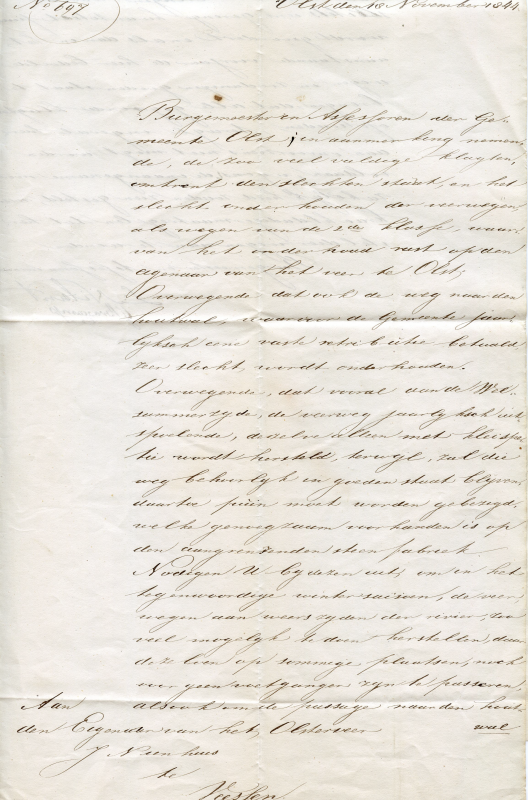 No 697
Olst den 18 November 1844.
Burgemeester en Assessoren der Ge-
meente Olst; in aanmerking nemen-
de, de zoo veelvuldige klagten,
omtrent den slechten staat, en het
slecht onderhouden der veerwegen
als wegen van de 2de klasse, waar-
van het onderhoud rust op den
eigenaar van het veer te Olst,
Overwegende dat ook de weg naar den
houtwal, waarvoor de Gemeente jaar-
lyksch eene vaste retributie betaald
zeer slecht, wordt onderhouden.
Overwegende, dat vooral aan de Wel-
summerzyde, de veerweg jaarlyksch uit-
spoelende, dezelve alleen met kleispe-
tie wordt hersteld, terwyl, zal die
weg behoorlyk in goeden staat blyven,
daartoe puin moet worden gebezigd,
welke genoegzaam voorhanden is op
den aangrenzenden steenfabreek.
Nodigen U by dezen uit, om in het
tegenwoordige winter saisoen, de veer-
wegen aan weerszyden der rivier, zoo
veel mogelyk te doen herstellen, daar
deze op sommige plaatsen, noch
voor geen voetgangers zyn te passeren,
alsook om de passage naar den hout
wal
Aan
den Eigenaar van het Olsterveer
J Nienhuis
te
Veessen.